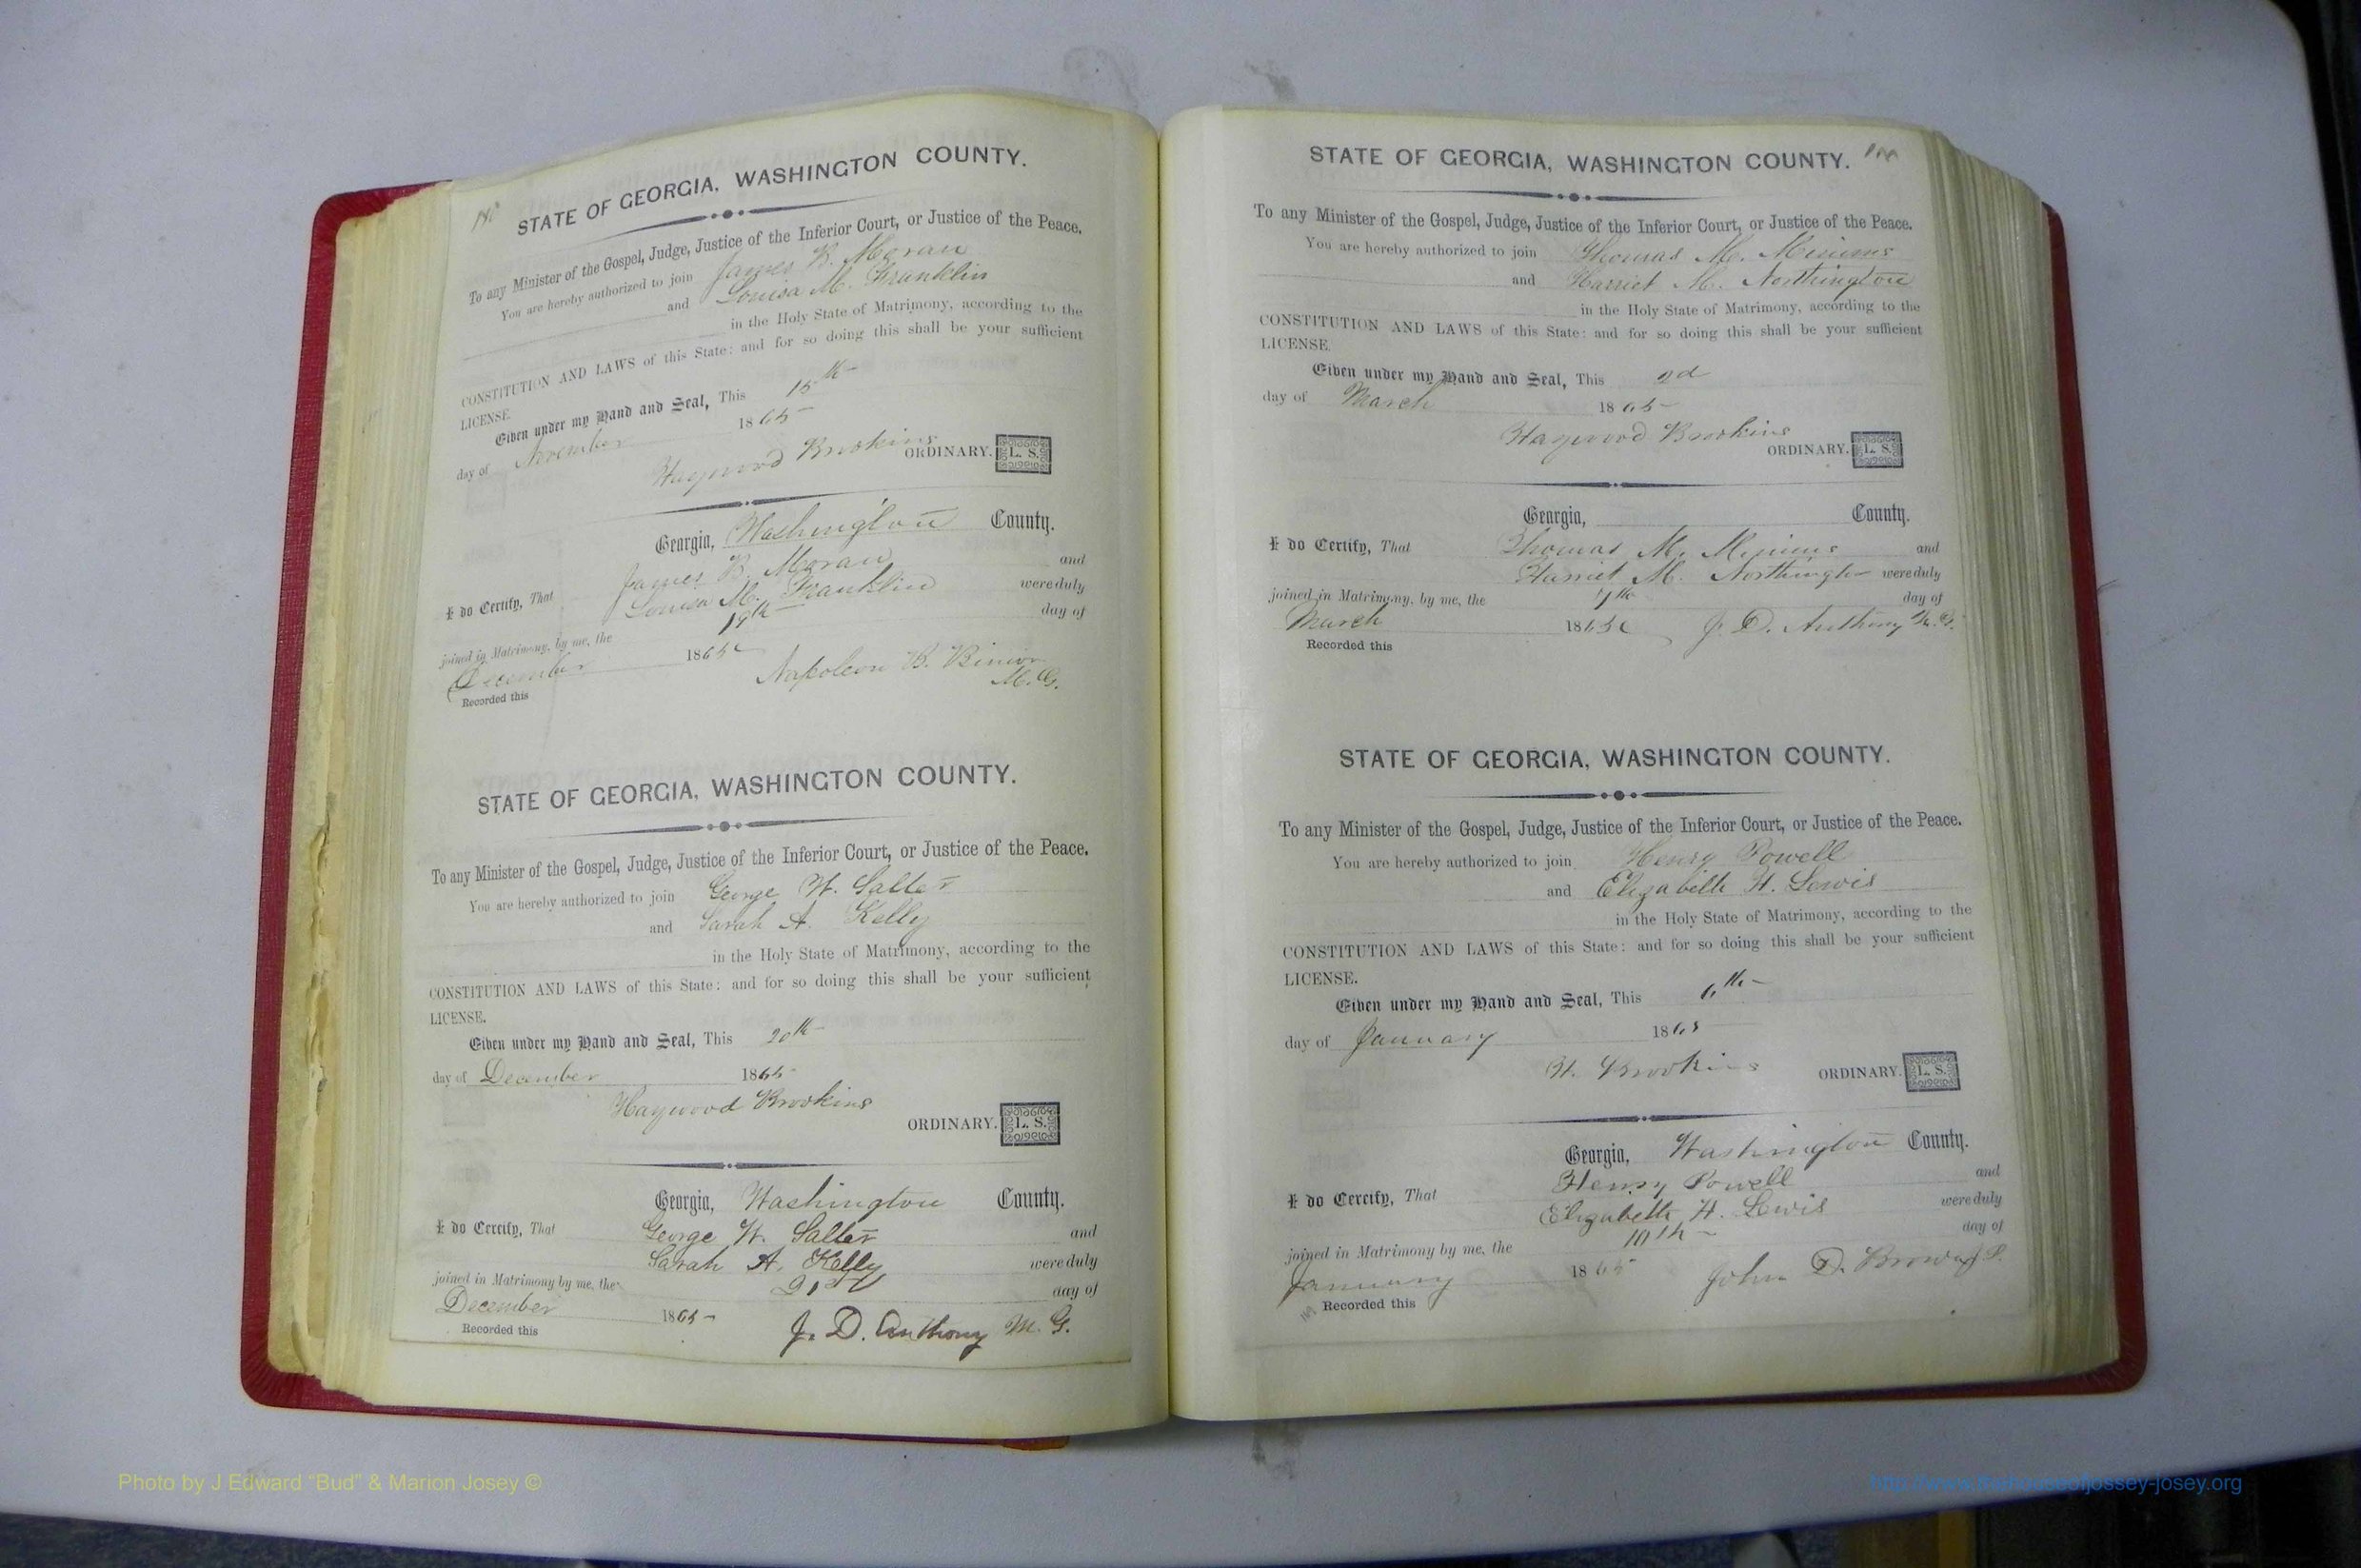 STATE OF GEORGIA, WASHINGTON COUNTY.
To any Minister of the Gospel, Judge, Justice of the Inferior Court, or Justice of the Peace.
You are hereby authorized to join James B. Moran
and Louisa M. Franklin
in the Holy State of Matrimony, according to the
CONSTITUTION AND LAWS of this State: and for so doing this shall be your sufficient
LICENSE.
Given under my Hand and Seal, This 15th
day of November 1865
Haywood Brookins ORDINARY. L. S.
Georgia, Washington County.
I do Certify, That James B. Moran and
Louisa M. Franklin were duly
joined in Matrimony, by me, the 19th day of
December 1865
Napoleon B. Binion
M.G.
Recorded this
STATE OF GEORGIA, WASHINGTON COUNTY.
To any Minister of the Gospel, Judge, Justice of the Inferior Court, or Justice of the Peace.
You are hereby authorized to join George W. Salter
and Sarah A. Kelly
in the Holy State of Matrimony, according to the
CONSTITUTION AND LAWS of this State: and for so doing this shall be your sufficient
LICENSE.
Given under my Hand and Seal, This 20th
day of December 1865
Haywood Brookins
ORDINARY. L. S.
Georgia, Washington County.
I do Certify, That George W. Salter and
Sarah A. Kelly were duly
joined in Matrimony by me, the 21st day of
December 1865
J. D. Anthony M. G.
Recorded this
STATE OF GEORGIA, WASHINGTON COUNTY.
To any Minister of the Gospel, Judge, Justice of the Inferior Court, or Justice of the Peace.
You are hereby authorized to join Thomas M. Minims
and Harriet M. Northington
in the Holy State of Matrimony, according to the
CONSTITUTION AND LAWS of this State: and for so doing this shall be your sufficient
LICENSE.
Given under my Hand and Seal, This 2d
day of March 1865
Haywood Brookins
ORDINARY. L. S.
Georgia, County.
I do Certify, That Thomas M. Minims and
Harriet M. were duly
joined in Matrimony, by me, the 7th day of
March 1865 J. D. Anthony M. G.
Recorded this
STATE OF GEORGIA, WASHINGTON COUNTY.
To any Minister of the Gospel, Judge, Justice of the Inferior Court, or Justice of the Peace.
You are hereby authorized to join Henry Powell
and Elizabeth H. Lewis
in the Holy State of Matrimony, according to the
CONSTITUTION AND LAWS of this State: and for so doing this shall be your sufficient
LICENSE.
Given under my Hand and Seal, This 6th
day of January 1865
H. Brookins ORDINARY. L. S.
Georgia, Washington County.
I do Certify, That Henry Powell and
Elizabeth H. Lewis were duly
joined in Matrimony by me, the 10th day of
January 1865 John D. Brown
Recorded this
Photo by J Edward "Bud" & Marion Josey ©
http://www.thehouseofjossey-josey.org